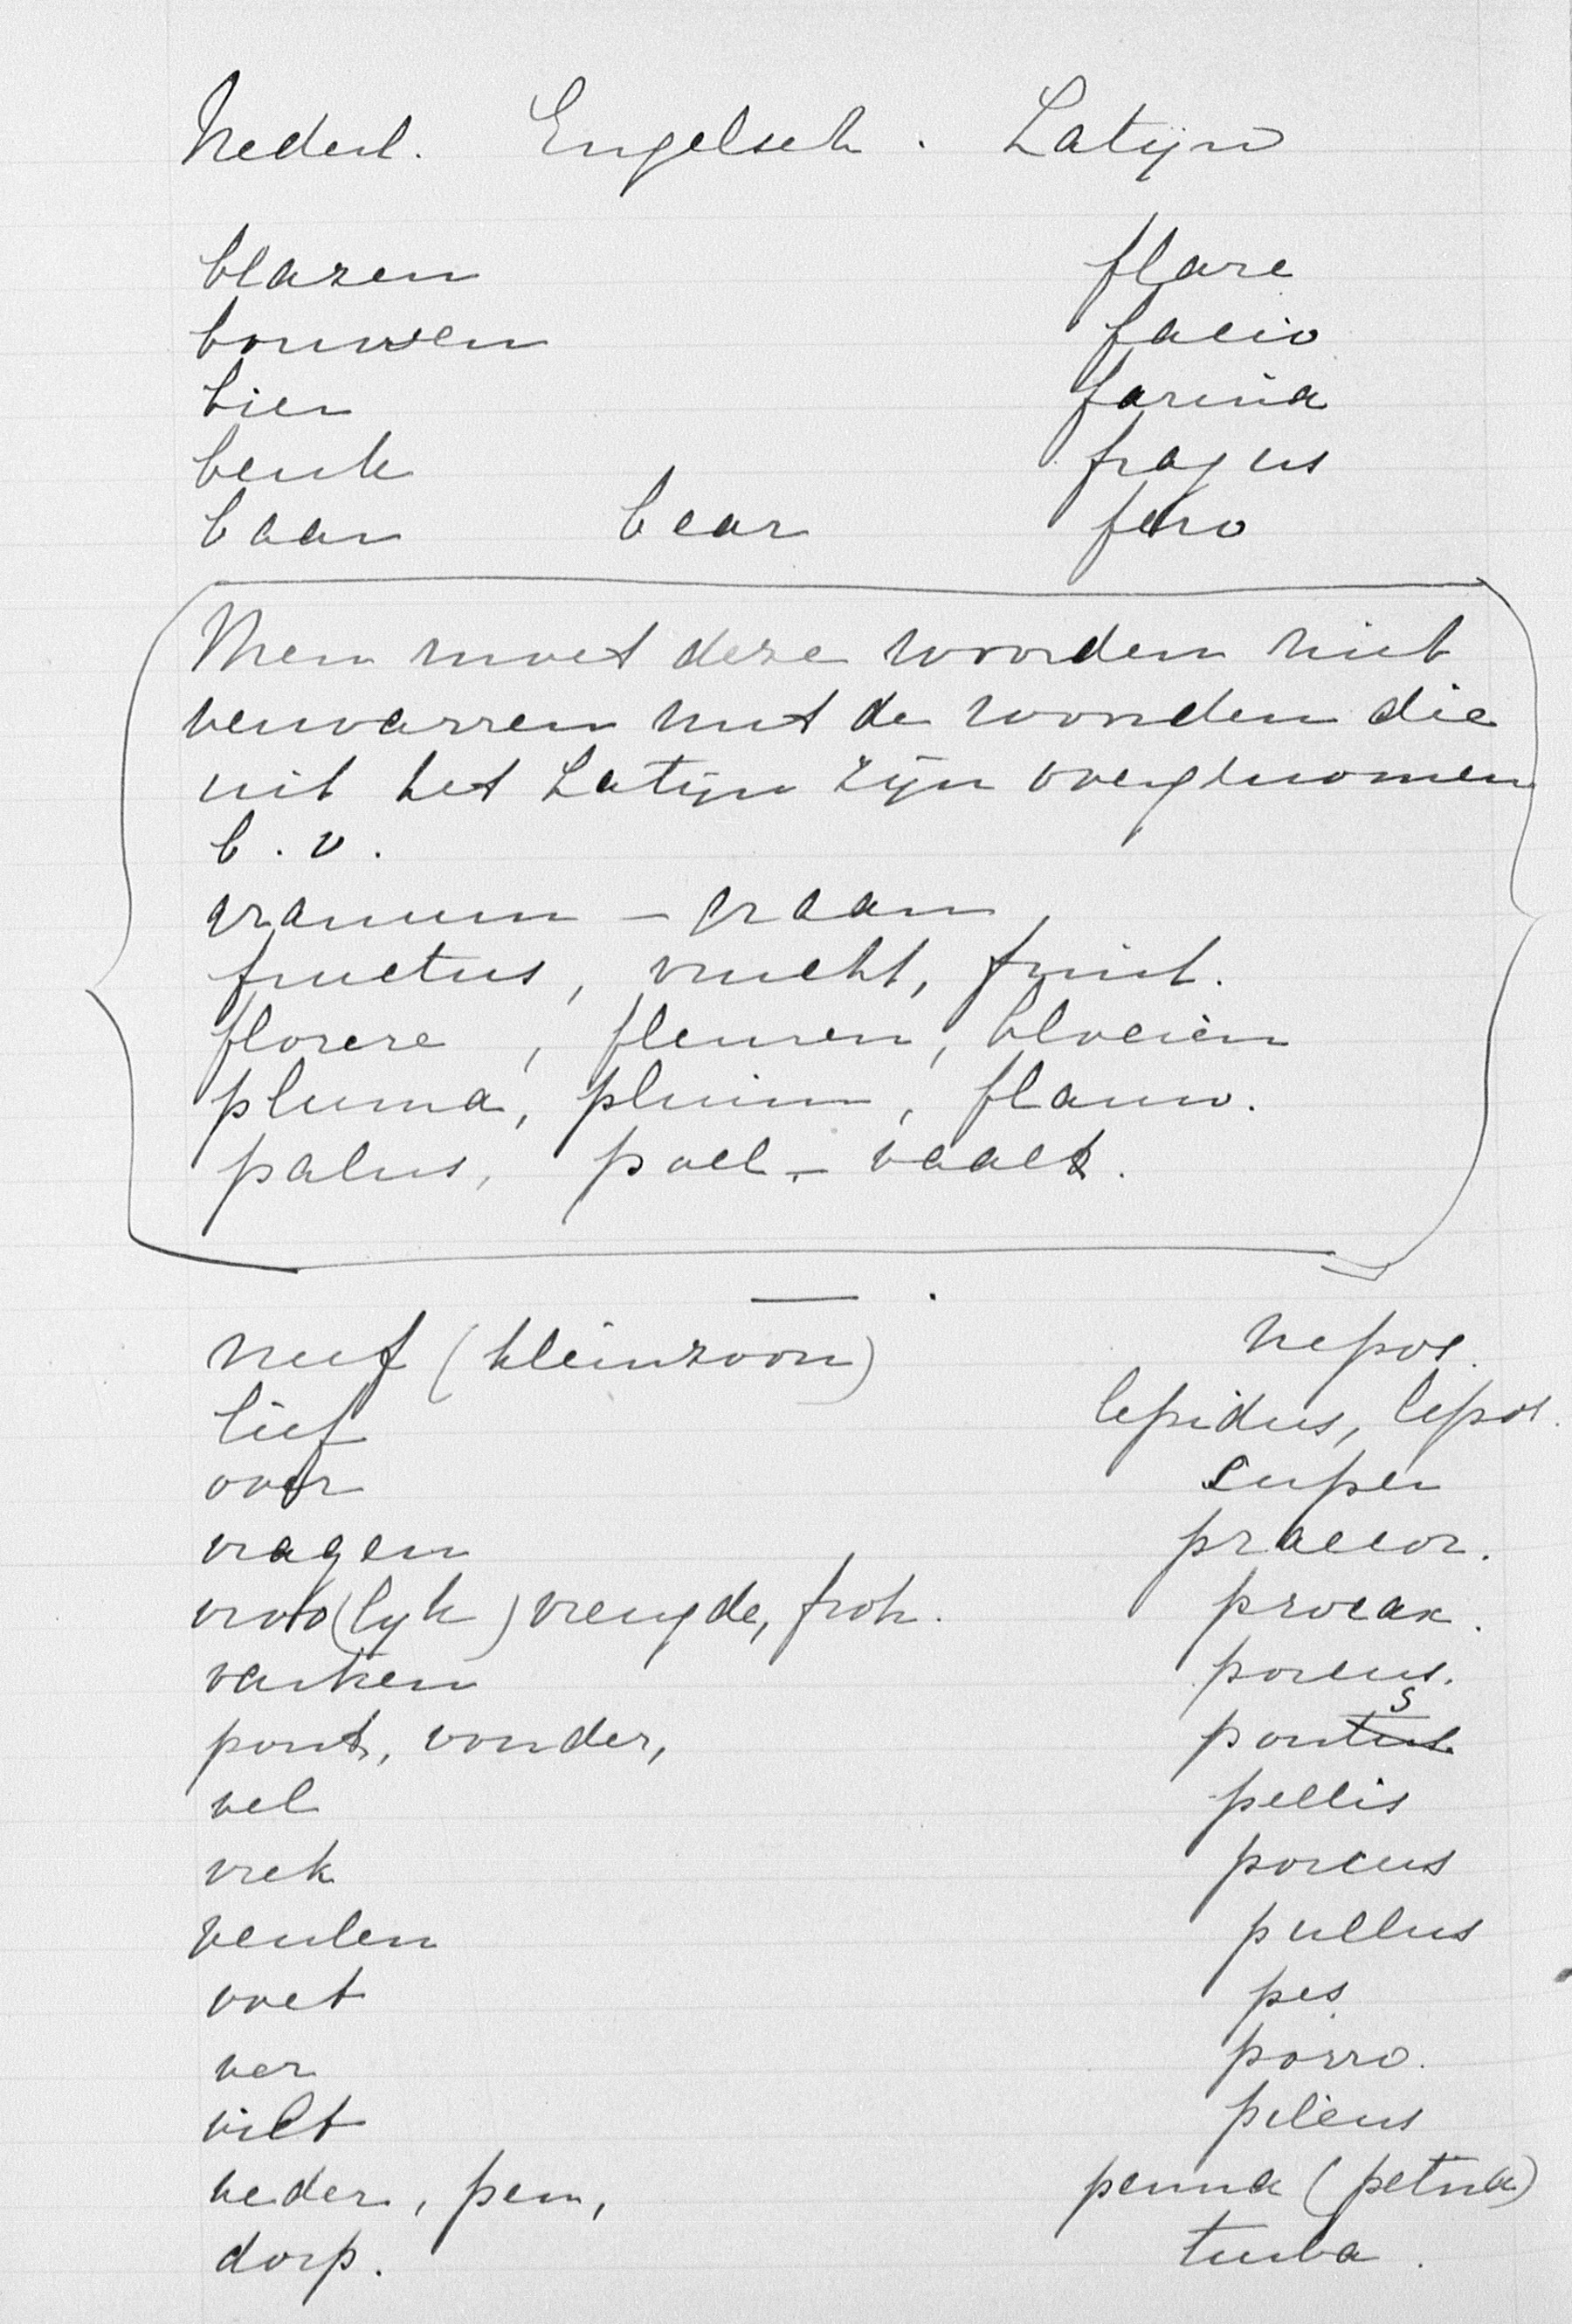 Nederl. Engelsch. Latijn
blazen flare
bouwen facio
bier farina
beuk fragus
baar bear fero
Men moet deze woorden niet
verwarren met de woorden die
uit het Latijn zijn overgenomen
b.v.
granum – graan,
fructus, vrucht, fruit.
florere, fleuren, bloeien
pluma, pluim, flauw.
palus, poel –
neef (kleinzoon) nepos.
lief lepidus, lepos.
over super
vragen praecor.
vroo(lyk) vreugde, froh. procax.
varken porcus.
pont, vonder, pons
vel pellis
vrek porcus
veulen pullus
voet pes
ver porro.
vilt pileus
veder, pen, penna (petna)
dorp. turba.